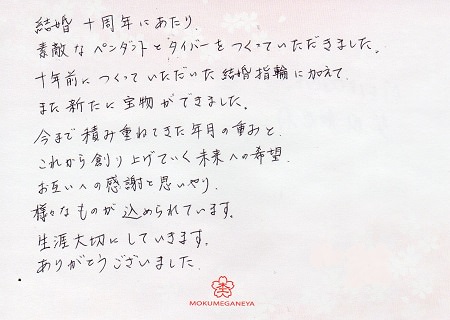 結婚 十周年にあたり、
素敵な ペンダントと タイバーを つくっていただきました。
十年前に つくっていただいた 結婚指輪に加えて、
また 新たに 宝物が できました。
今まで 積み重ねてきた 年月の 重みと、
これから 創り上げていく 未来への 希望、
お互いへの 感謝と 思いやり、
様々な ものが 込められています。
生涯 大切に していきます。
ありがとうございました。
MOKUMEGANEYA